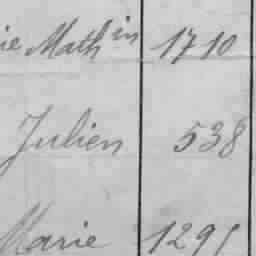 ie Math in 1710
Julien 538
Marie 1291